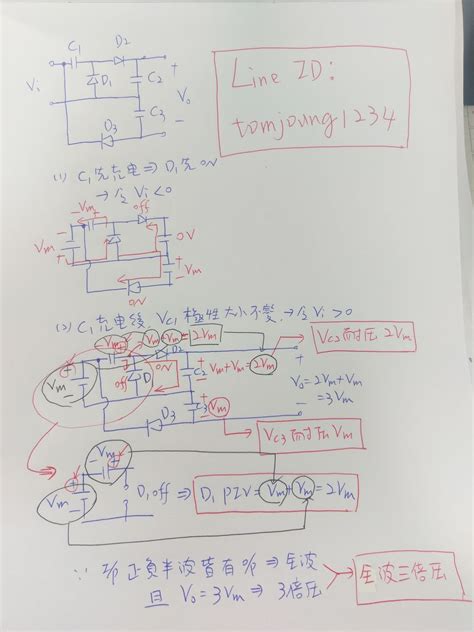 C1 D2
Vi D1 C2 + Vo -
C3
D3
Line ID:
tomjoung1234
(1) C1先充電⇒D1先ON
→令Vi<0
-Vm+ off
Vm - + 0V
+ Vm -
ON
(2) C1充電後, VC1極性大小不變,→令Vi>0
Vm Vm+Vm=2Vm
D2
VC2耐压2Vm
+ Vm - off D1 ON + C2 - Vm+Vm=2Vm
Vo=2Vm+Vm
=3Vm
D3 + C3 - Vm
VC3耐压Vm
Vm
Vm D1off⇒ D1 PIV=Vm+Vm=2Vm
∵ i/p正負半波皆有o/p⇒全波
且 Vo=3Vm⇒3倍压
全波三倍压